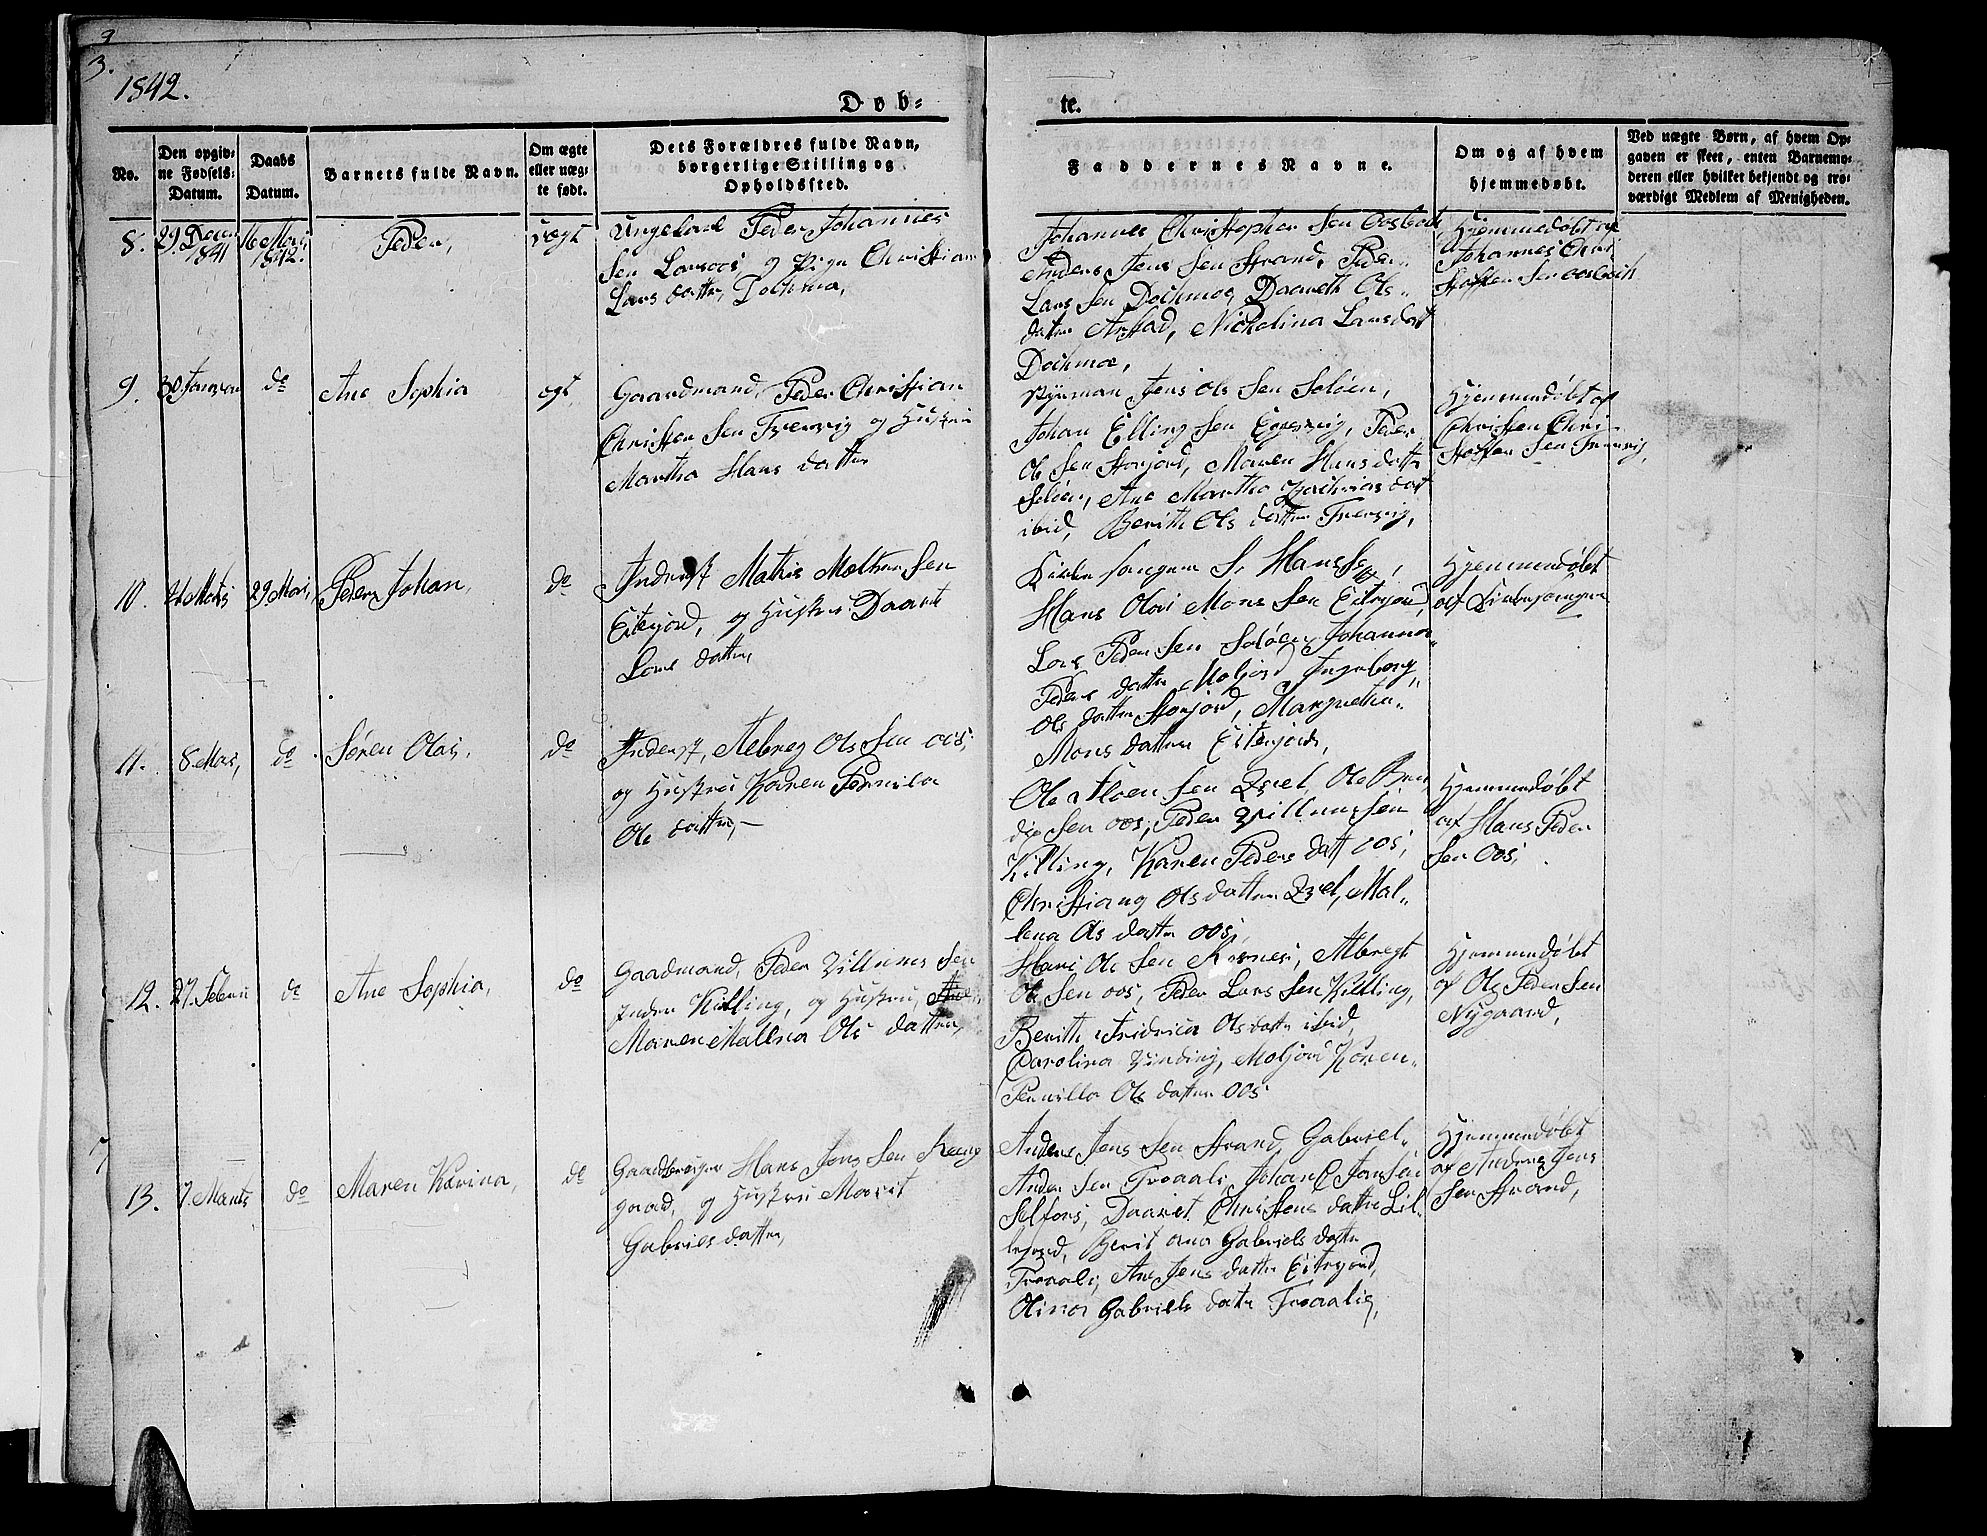 3.
1842.
Døb-
te.
No.
Den opgiv-
ne Fødsels-
Datum.
Daabs
Datum.
Barnets fulde Navn.
Om ægte
eller uæg-
te født.
Dets Forældres fulde Navn,
borgerlige Stilling og
Opholdssted.
Faddernes Navne.
Om og af hvem
hjemmedøbt.
Ved uægte Børn, af hvem Op-
gaven er skeet, enten Barnemo-
deren eller hvilket bekjendt og tro-
værdigt Medlem af Menigheden.
8.
29 Decem
1841
16 Mai
1842.
Peder,
uægt
Ungekarl Peder Johannes
Sen og Pige Christian
Lars datter,
Johannes Christopher Sen
Anders Jens Sen Strand, Peder
Lars Sen Dochmoe, Daareth Ols
datter Arstad, Nicholina Larsdatt
Dochmoe,
Hjemmedøbt af
Johannes Chri
Stoffer Sen
9.
30 Januar
do
Ane Sophia
ægt
Gaardmand, Peder Christian
Christen Sen Tvervig og Hustrue
Martha Hans datter
Jens Ols Sen Soløen,
Johan Elling Sen Evervig, Peder
Ole Sen Storjord, Maren Hans datter
Soløen, Ane Martha Zachrias datt
ibid, Berith Ols datter Tvervig,
Hjemmedøbt af
Christen Chri-
Stoffer Sen Tverrvig,
10.
29 Mai,
Peder Johan,
do
Inderst Mathis Mothen Sen
Eiterjord, og Hustrue Daaret
Lars datter,
Kirke sanger S. Hans
Hans Olai Mons Sen Eiterjord,
Lars Peder Sen Soløen, Johanna
Peders datter Moljord Ingeborg
Ols datter Storjord, Margretha
Mons datter Eiterjord,
Hjemmedøbt
af Kirkesanger
11.
8. Mai,
do
Søren Olai,
do
Inderst, Aelbreg Ols Sen oos,
og Hustrue Karen Pernilla
Ole datter,
Ole Sen Qvel, Ole Bren
die Sen oos, Peder Willum sen
Killing, Karen Peders datt oos,
Christiana Ols datter Qvel, Mal-
lena Ols datter oos,
Hjemmedøbt
af Hans Peder
Sen Oos,
12.
27. Februi
do
Ane Sophia,
do
Gaardmand, Peder Villums Sen
Inder Killing, og Hustrue,
Maren Mallna Ols datter,
Ole Sen Albregt
Ole Sen oos, Peder Lars Sen Killing,
Berith Fridrica Ols datter ibid,
Carolina Vinding, Moljord Karen
Pernilla Ols datter oos
Hjemmedøbt
af Ole Peder Sen
Nygaard,
13.
7. Marts
do
Maren Karina,
do
Gaardbruger Hans Jens Sen
gaard, og Hustrue Marit
Gabriels datter,
Anders Jens Sen Strand, Gabriel
Anders Sen Traali, Johan Jansen
Selfors, Daaret Christens datter Lil-
Berit ana Gabriels datter
Traali, Ane Jens datter Eiterjord,
Olina Gabriels datter Traalie,
Hjemmedøbt
af Anders Jens
Sen Strand,